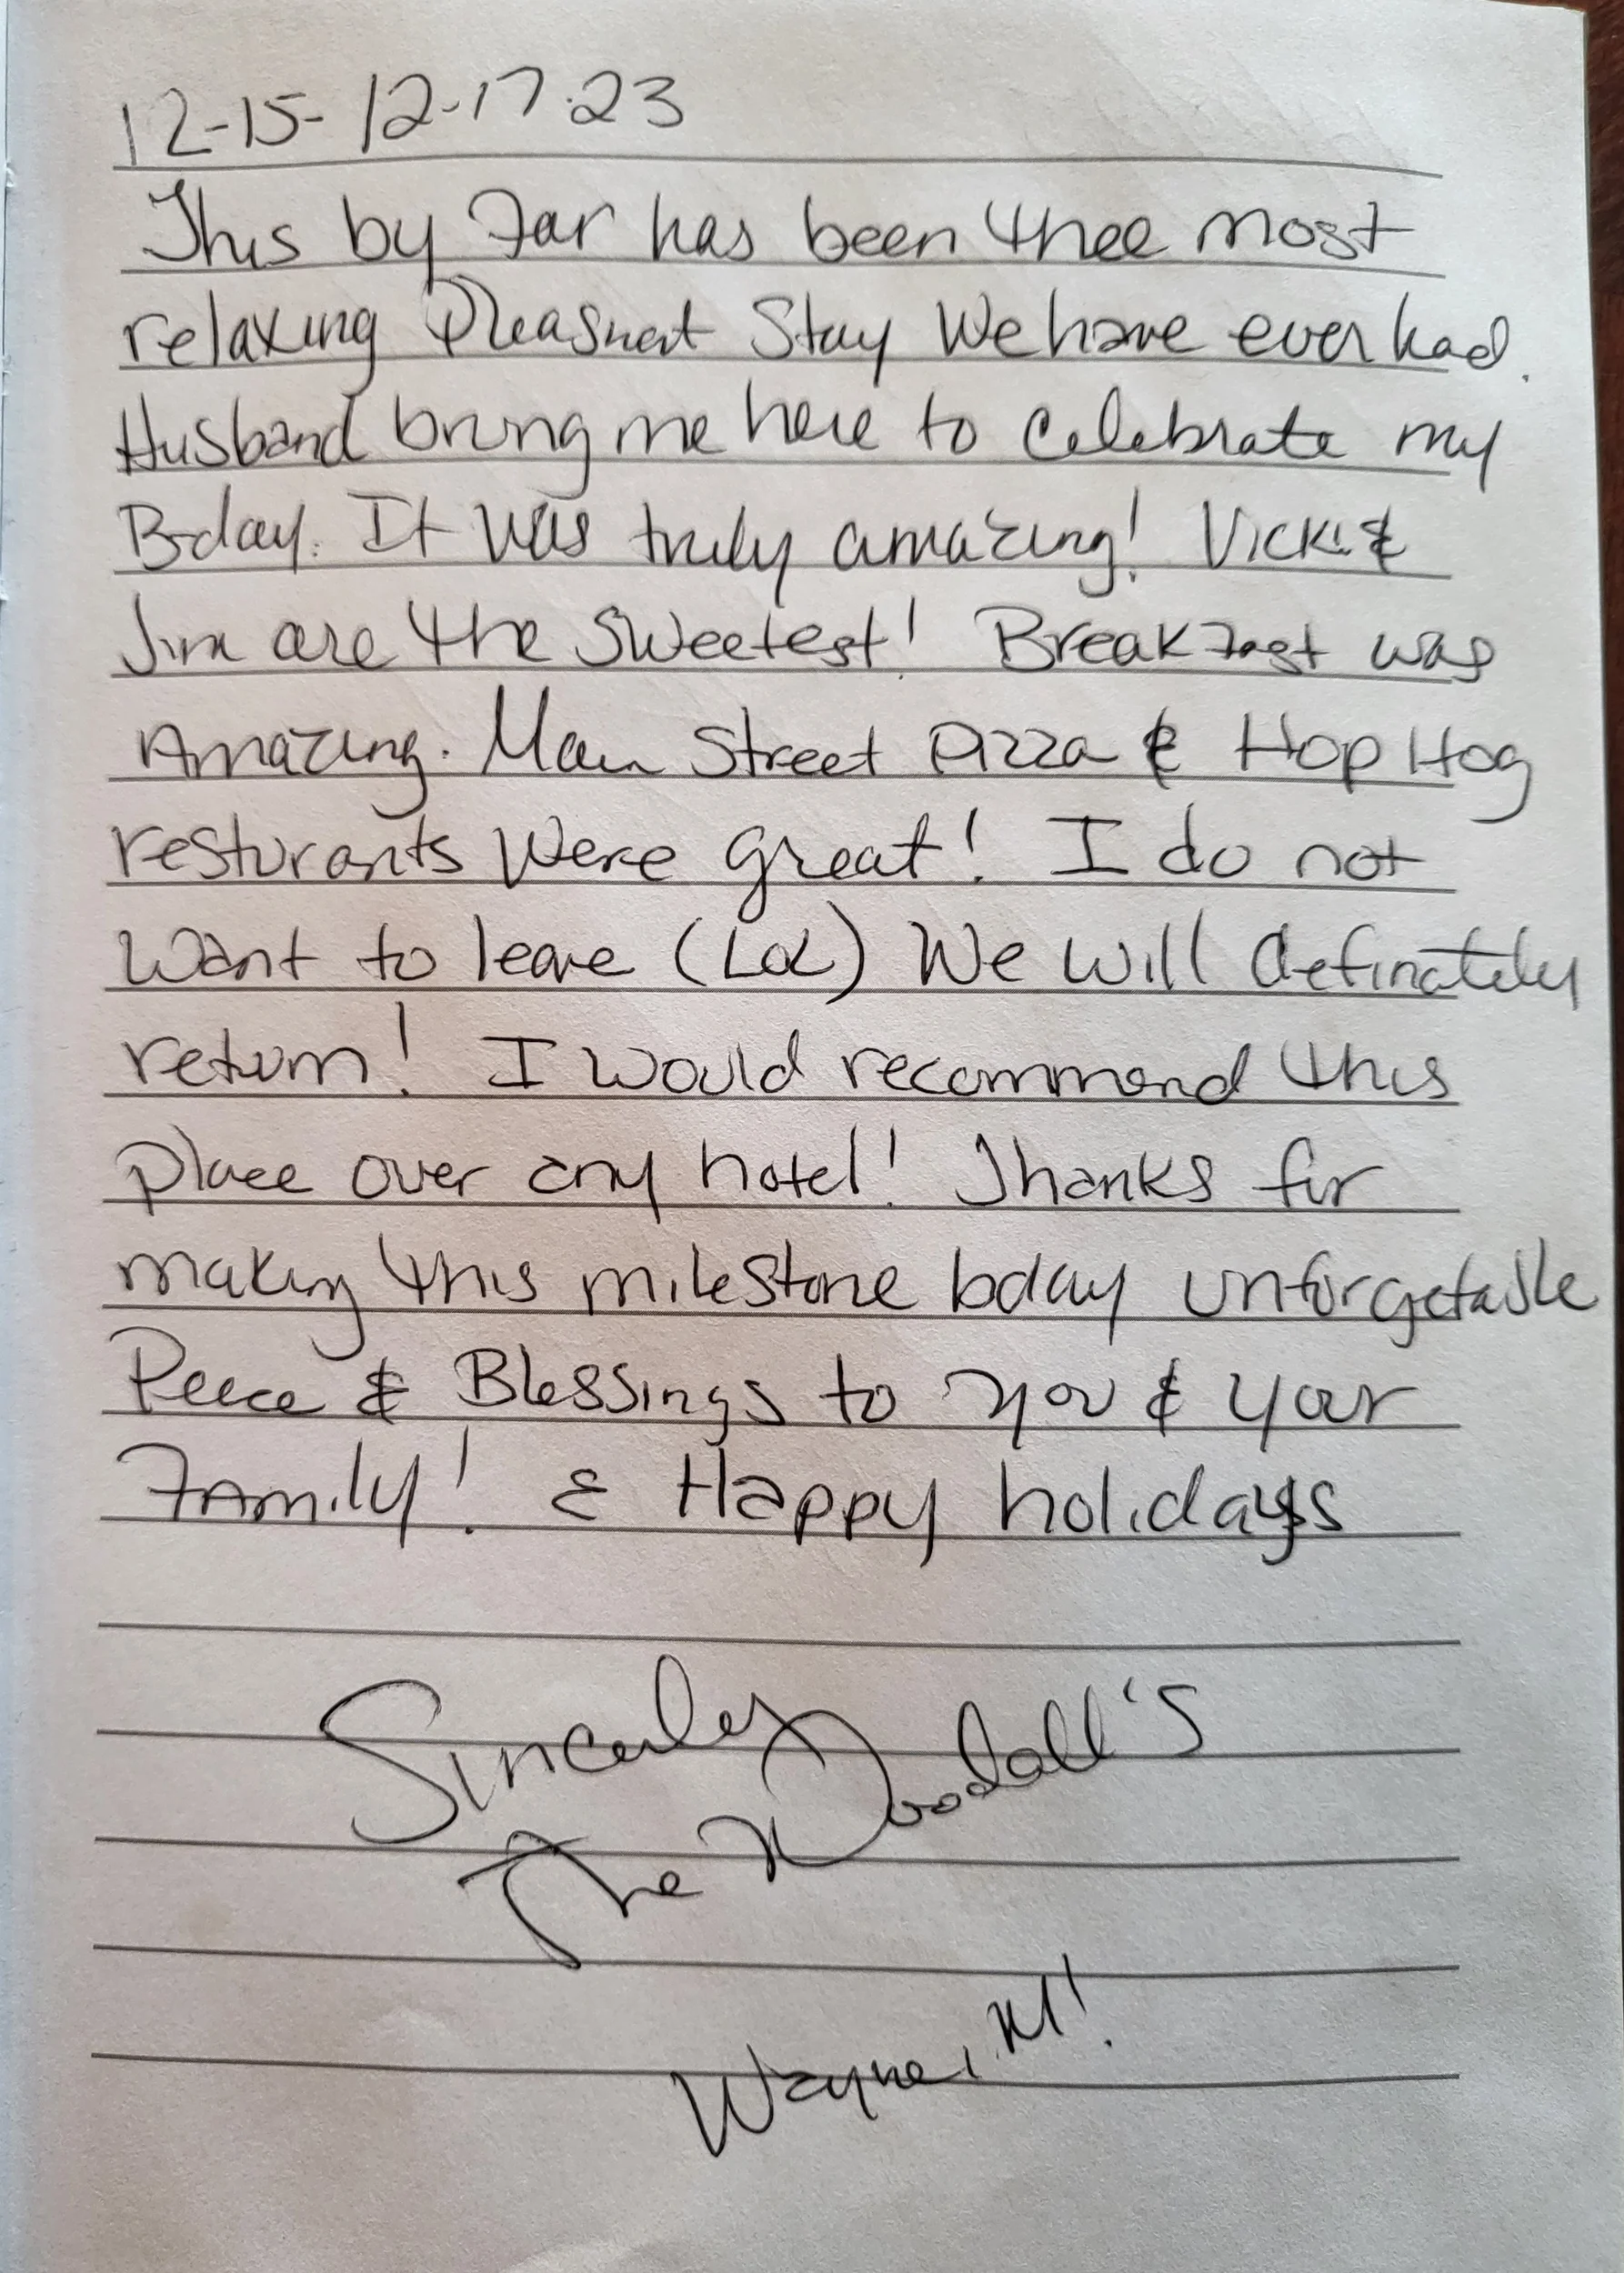 12-15-12-17-23
This by Far has been thee most
relaxing Pleasnent Stay We have ever had.
Husband bring me here to Celebrate my
B-day. It was truly amazing! Vicki &
Jim are the Sweetest! Breakfast was
Amazing. Main Street Pizza & Hop Hog
resturants Were great! I do not
Want to leave (LOL) We will definately
return! I would recommend this
place over any hotel! Thanks for
making this milestone bday unforgetable
Peece & Blessings to you & your
Family! & Happy holidays
Sincerley
The Woodall's
Wayne, MI!